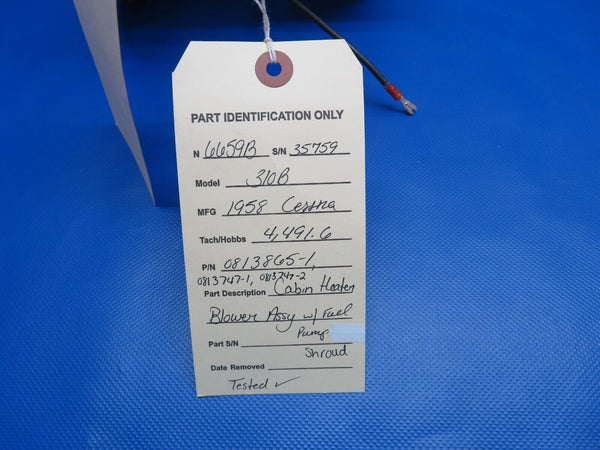 PART IDENTIFICATION ONLY
N 6659B S/N 35759
Model 310B
MFG 1958 Cessna
Tach/Hobbs 4,491.6
P/N 0813865-1,
0813747-1, 0813747-2
Part Description Cabin Heater
Blower Assy w/ Fuel
Pump
Part S/N
Shroud
Date Removed
Tested ✓